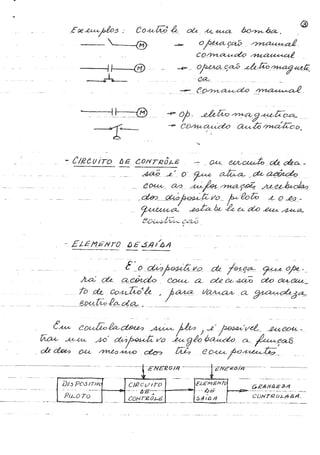 ③
Exemplos: Contrôle de uma bomba.
M → operação manual
comando manual
M → operação eletromagnéti
ca
→ comando manual
M → op. eletromagnética
→ comando automático.
- CIRCUITO DE CONTRÔLE - ou circuito de deci-
são é o que atua, de acôrdo
com as informações recebidas
dos dispositivo pilôto e o es-
quema estabelecido em sua
construção
- ELEMENTO DE SAÍDA
É o dispositivo de fôrça que ope-
rá de acôrdo com a decisão do circui-
to de contrôle, para variar a grandeza
controlada.
Em controladores simples, é possível encon-
trar um só dispositivo englobando a função
de dois ou mesmo dos três componentes.
ENERGIA ENERGIA
DISPOSITIVO PILOTO
CIRCUITO DE CONTROLE
ELEMENTO DE SAIDA
GRANDEZA CONTROLADA.